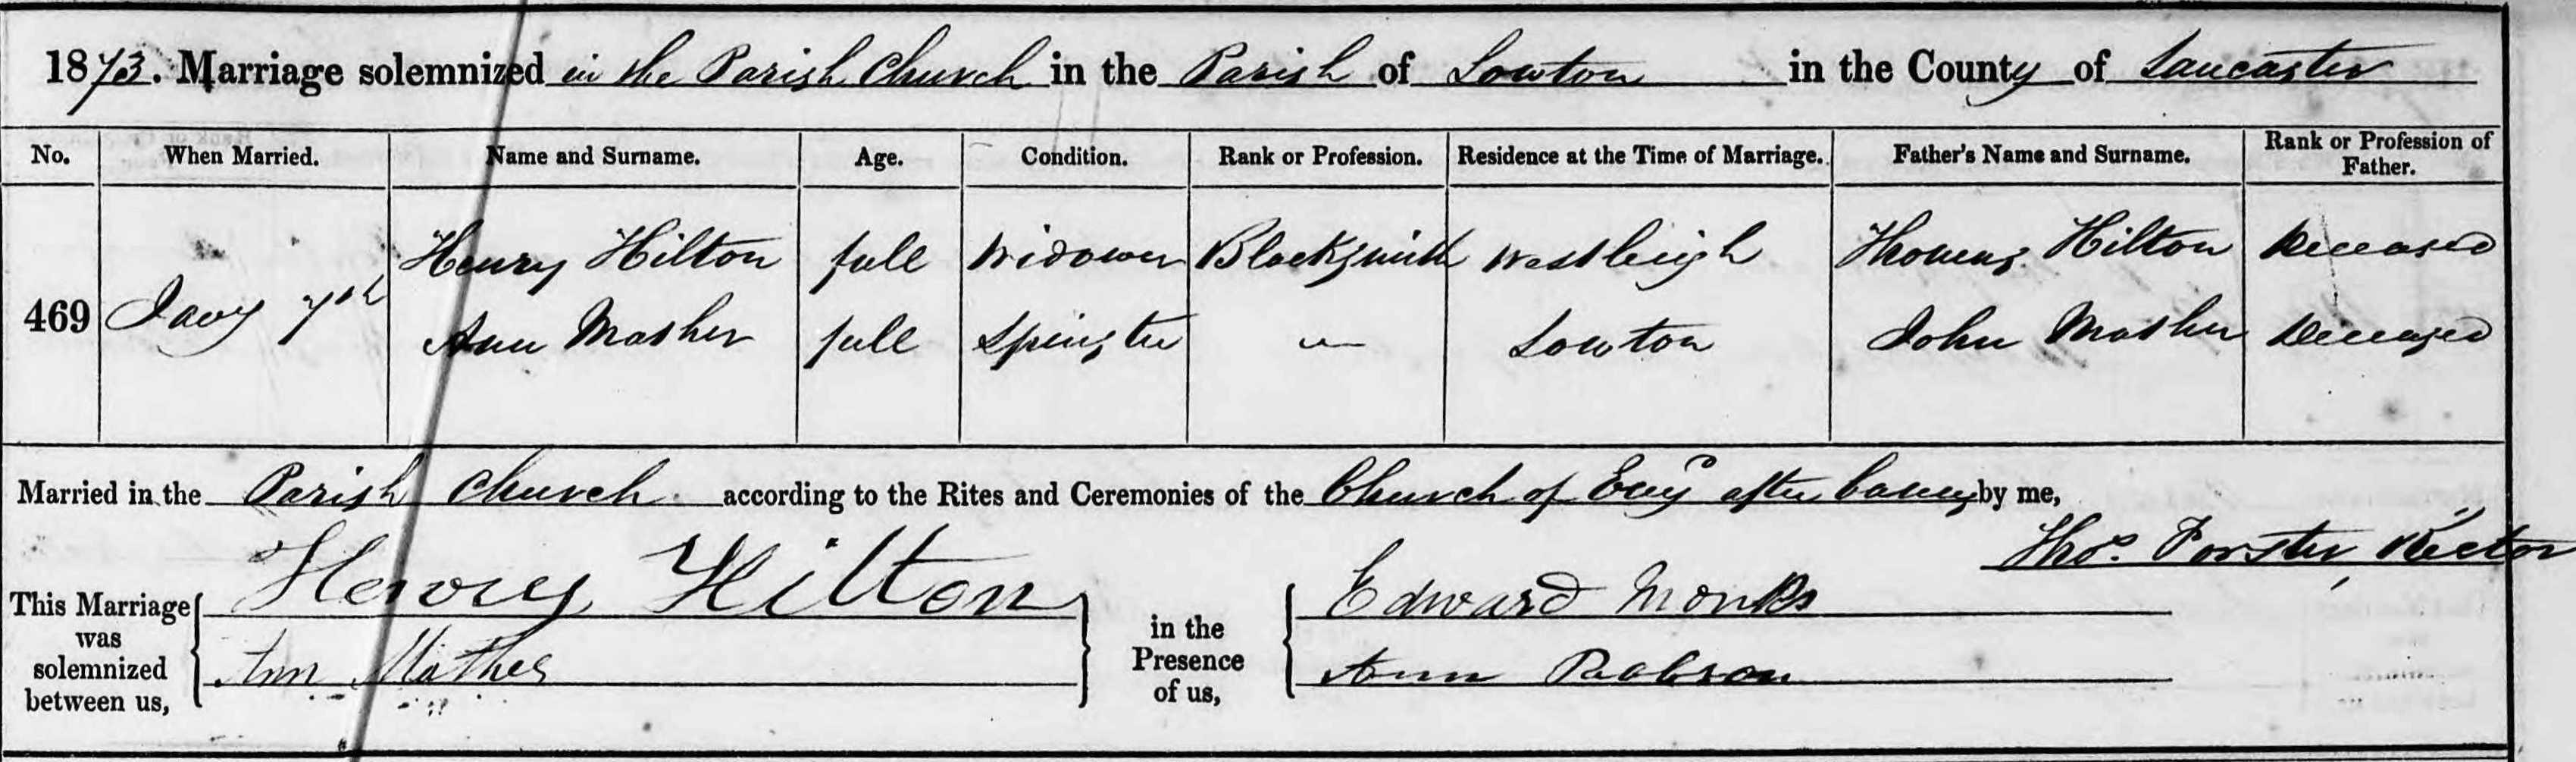 1873. Marriage solemnized in the Parish Church in the Parish of Lowton in the County of Lancaster
No. When Married. Name and Surname. Age. Condition. Rank or Profession. Residence at the Time of Marriage. Father's Name and Surname. Rank or Profession of Father.
Henry Hilton full Widower Blacksmith Westleigh Thomas Hilton Deceased
469 Jany 7th
Ann Mather full Spinster — Lowton John Mather Deceased
Married in the Parish Church according to the Rites and Ceremonies of the Church of Eng after banns by me,
Thos. Forster, Rector
This Marriage was solemnized between us, Henry Hilton in the Presence of us, Edward Monks
Ann Mather Ann Robson